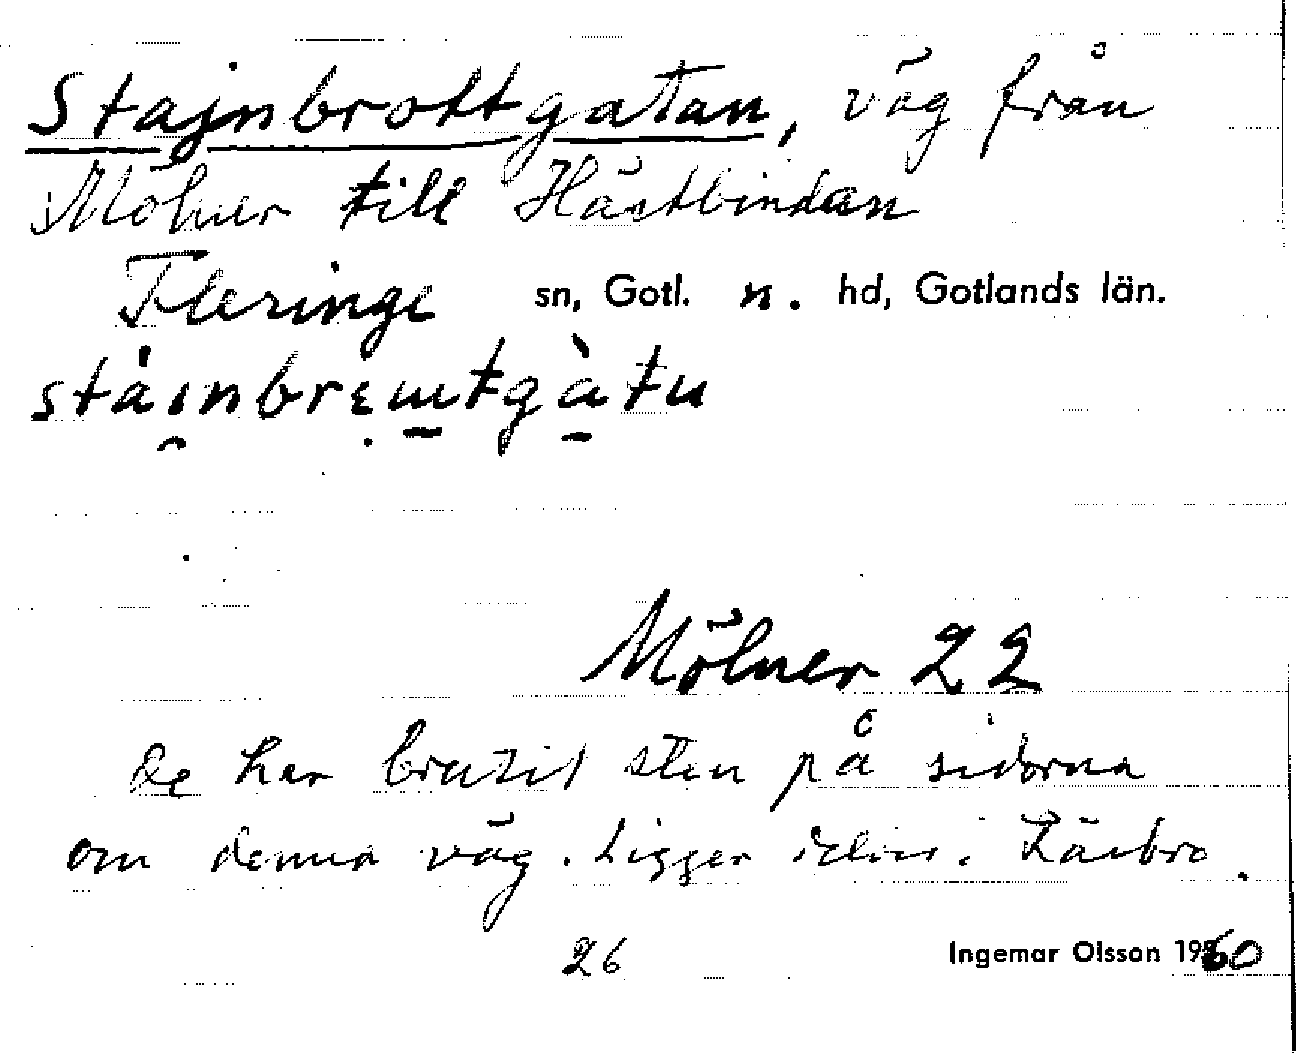 Stajnbrottgatan, väg från
Mölner till Hästbindan
Fleringe sn, Gotl. n. hd, Gotlands län.
Mölner 22
De har brutit sten på sidorna
om denna väg. Ligger delvis i Lärbro.
26 Ingemar Olsson 1960